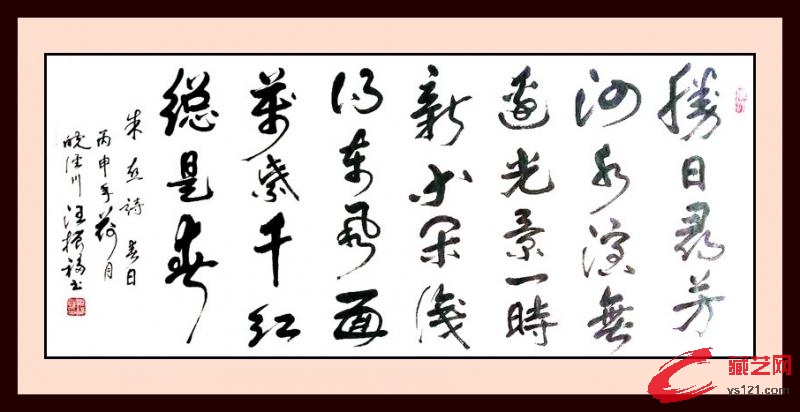 勝日尋芳
泗水濱無
邊光景一時
新等閑識
得東風面
萬紫千紅
總是春
朱熹詩 春日
丙申年荷月
皖川汪振福书
藏艺网
ys121.com